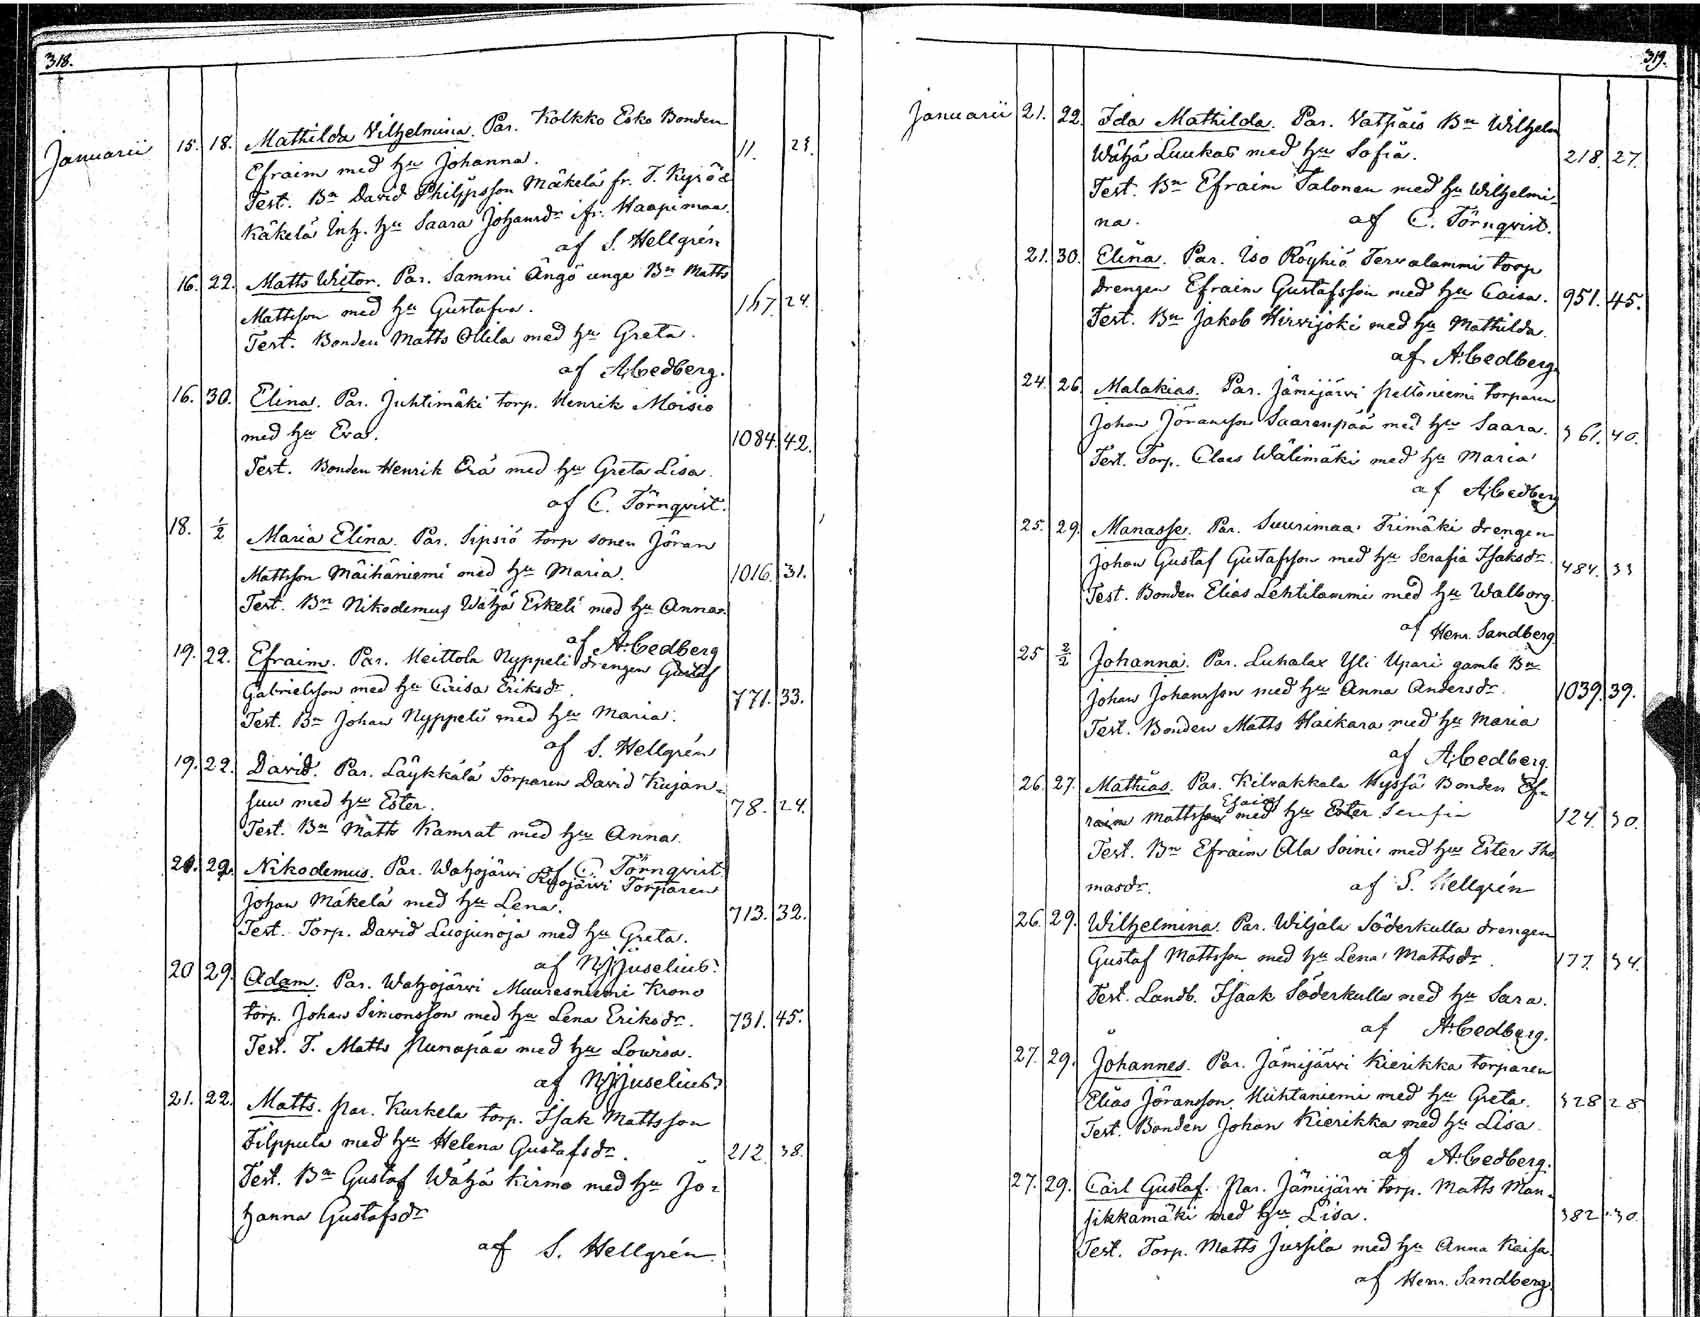 318.
Januarii 15. 18. Mathilda Vilhelmina. Par. Kolkko Esko Bonden
Efraim med hu Johanna. 11. 23.
Test. Bn David Philipsson Mäkelä fr. T. Kyrö &
Käkelä Inh. hu Saara Johansdr fr. Haapimaa.
af S. Hellgrén
16. 22. Matts Wictor. Par. Sammi Ångö unge Bn Matts
Mattsson med hu Gustafva. 167. 24.
Test. Bonden Matts Ollila med hu Greta.
af A. Cedberg.
16. 30. Elina. Par. Juhtimäki torp. Henrik Moisio
med hu Eva. 1084. 42.
Test. Bonden Henrik Erä med hu Greta Lisa.
af C. Törnqvist.
18. 1/2 Maria Elina. Par. Sipsiö torp sonen Jöran
Mattsson Mäihäniemi med hu Maria. 1016. 31.
Test. Bn Nikodemus Wähä Eskeli med hu Anna.
af A. Cedberg
19. 22. Efraim. Par. Heittola Nyppeli drengen Gustaf
Gabrielsson med hu Caisa Eriksdr. 771. 33.
Test. Bn Johan Nyppeli med hu Maria.
af S. Hellgrén
19. 22. David. Par. Läykkälä Torparen David Kujan-
suu med hu Ester. 78. 24.
Test. Bn Matts Kamrat med hu Anna.
af C. Törnqvist
29. Nikodemus. Par. Wahojärvi Torparen
Johan Mäkelä med hu Lena. 713. 32.
Test. Torp. David Luojunoja med hu Greta.
af N. J. Juselius.
20 29. Adam. Par. Wahojärvi Muuresniemi Krono
torp. Johan Simonsson med hu Lena Eriksdr. 731. 45.
Test. T. Matts Nunapää med hu Lovisa.
af N. J. Juselius.
21. 22. Matts. Par. Kurkela torp. Isak Mattsson
Filppula med hu Helena Gustafsdr. 212. 38.
Test. Bn Gustaf Wähä Kirmo med hu Jo-
hanna Gustafsdr
af S. Hellgrén.
319.
Januarii 21. 22. Ida Mathilda. Par. Vatpää Bn Wilhelm
Wähä Luukas med hu Sofia. 218. 27.
Test. Bn Efraim Talonen med hu Wilhelmi-
na. af C. Törnqvist.
21. 30. Elina. Par. Iso Röyhiö Tervalammi torp
drengen Efraim Gustafsson med hu Caisa. 951. 45.
Test. Bn Jakob Hirvijoki med hu Mathilda.
af A. Cedberg.
24. 26. Malakias. Par. Jämijärvi Peltoniemi torparen
Johan Jöransson Saarenpää med hu Saara. 361. 40.
Test. Torp. Claes Wälimäki med hu Maria
af A. Cedberg
25. 29. Manasse. Par. Suurimaa Trimäki drengen
Johan Gustaf Gustafsson med hu Serafia Isaksdr. 484. 33
Test. Bonden Elias Lehtilammi med hu Walborg.
af Henr. Sandberg
25 2/2 Johanna. Par. Luhalax Yli Upari gamle Bn
Johan Johansson med hu Anna Andersdr. 1039. 39.
Test. Bonden Matts Haikara med hu Maria
af A. Cedberg.
26. 27. Mathias. Par. Kilvakkala Hyssä Bonden Ef-
raim Mattsson med hu Ester Serafia 124. 30.
Test. Bn Efraim Ala Soini med hu Ester Tho
masdr. af S. Hellgrén
26. 29. Wilhelmina. Par. Wiljala Söderkulla drengen
Gustaf Mattsson med hu Lena Mattsdr. 177. 34.
Test. Landb. Isaak Söderkulla med hu Sara.
af A. Cedberg.
27. 29. Johannes. Par. Jämijärvi Kierikka torparen
Elias Jöransson Hiihtaniemi med hu Greta. 328 28.
Test. Bonden Johan Kierikka med hu Lisa.
af A. Cedberg.
27. 29. Carl Gustaf. Par. Jämijärvi torp. Matts Man-
sikkamäki med hu Lisa. 382 30.
Test. Torp. Matts Jussila med hu Anna Kaisa.
af Henr. Sandberg.